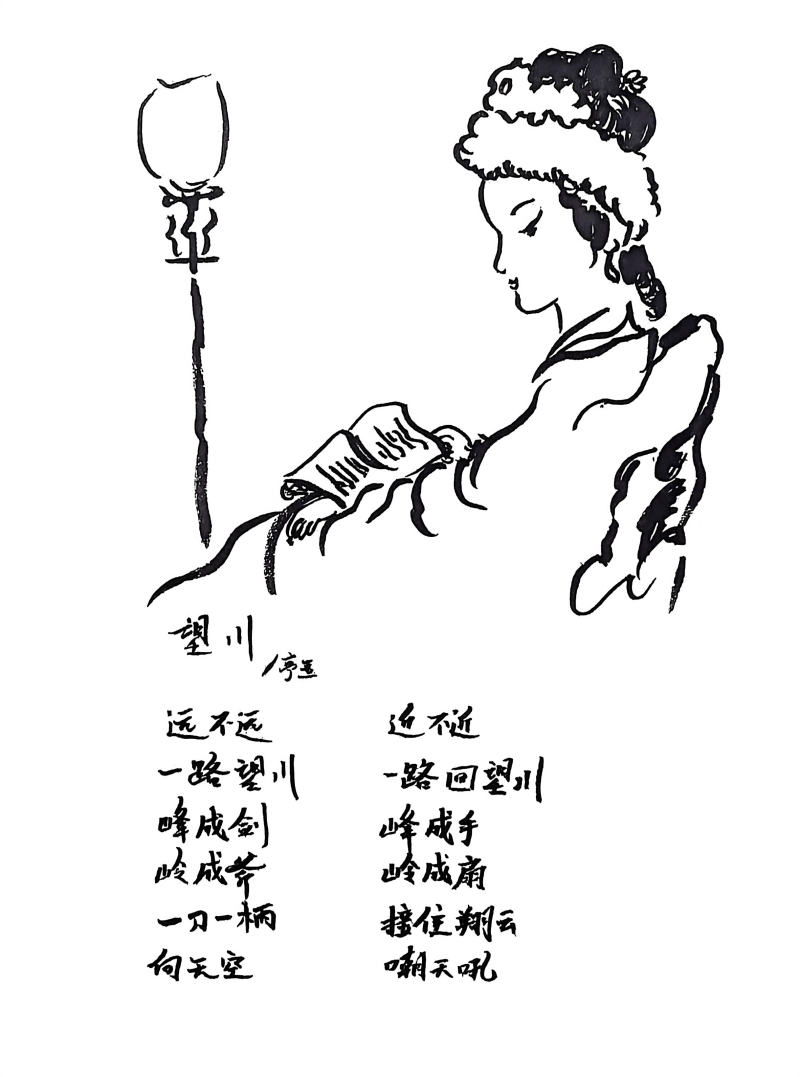 望川
/亭玉
远不远
一路望川
峰成剑
岭成斧
一刀一柄
向天空
近不近
一路回望川
峰成手
岭成扇
接住翔云
嘲天吼